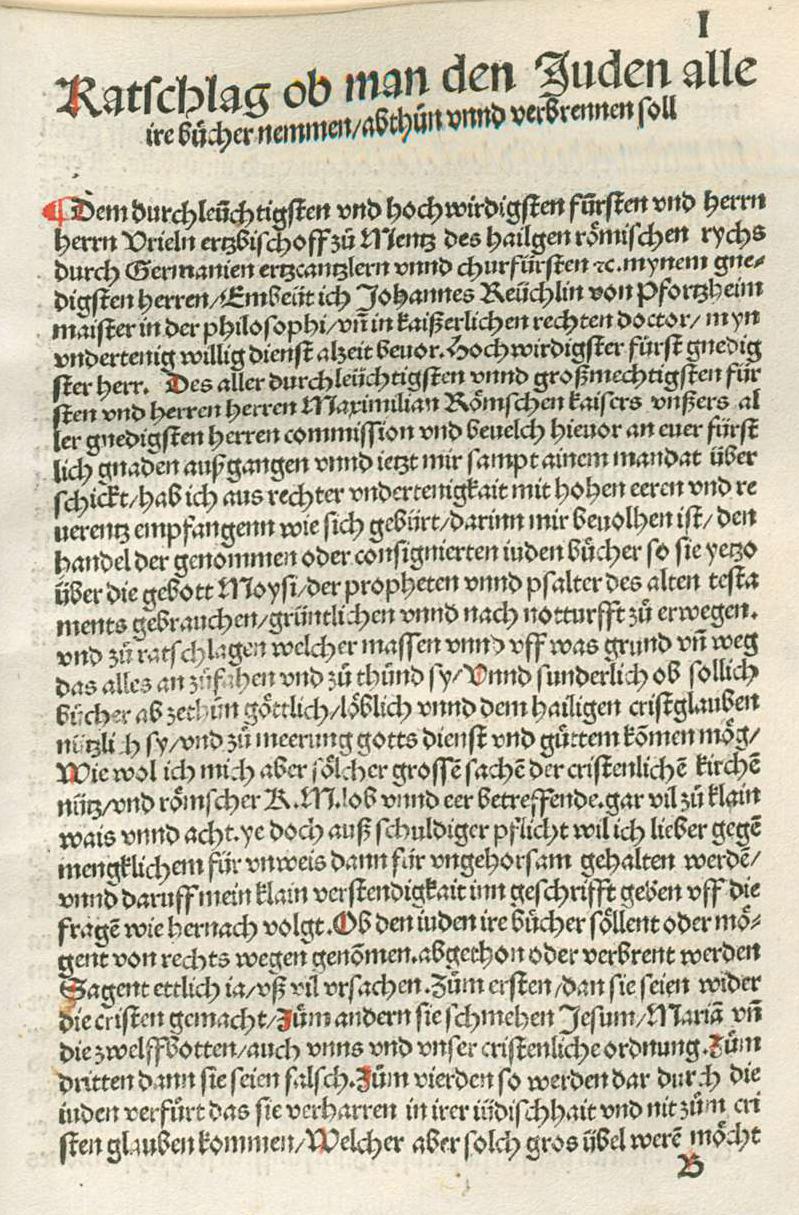 I
Ratschlag ob man den Juden alle
ire bücher nemmen/abthůn vnnd verbrennen soll
¶Dem durchleüchtigsten vnd hochwirdigsten fürsten vnd herrn
herrn Vrieln ertzbischoff zů Mentz des hailgen römischen rychs
durch Germanien ertzcantzlern vnnd churfürsten ꝛc. mynem gne⸗
digsten herren/Embeüt ich Johannes Reüchlin von Pfortzheim
maister in der philosophi/vñ in kaißerlichen rechten doctor/ myn
vndertenig willig dienst alzeit beuor. Hochwirdigster fürst gnedig
ster herr. Des aller durchleüchtigsten vnnd großmechtigsten für
sten vnd herren herren Maximilian Römschen kaisers vnßers al
ler gnedigsten herren commission vnd beuelch hieuor an euer fürst
lich gnaden außgangen vnnd ietzt mir sampt ainem mandat über
schickt/hab ich aus rechter vndertenigkait mit hohen eeren vnd re
uerentz empfangenn wie sich gebürt/darinn mir beuolhen ist/ den
handel der genommen oder consignierten iuden bücher so sie yetzo
über die gebott Moysi/der propheten vnnd psalter des alten testa
ments gebrauchen/grüntlichen vnnd nach notturfft zů erwegen.
vnd zů ratschlagen welcher massen vnnd vff was grund vñ weg
das alles an zůfahen vnd zů thůnd sy/Vnnd sunderlich ob sollich
bücher ab zethůn göttlich/löblich vnnd dem hailigen cristglauben
nützlich sy/vnd zů meerung gotts dienst vnd gůttem kömen mög/
Wie wol ich mich aber sölcher grossē sachē der cristenlichē kirchē
nütz/vnd römischer K.M.lob vnnd eer betreffende.gar vil zů klain
wais vnnd acht.ye doch auß schuldiger pflicht wil ich lieber gegē
mengklichem für vnweis dann für vngehorsam gehalten werdē/
vnnd daruff mein klain verstendigkait inn geschrifft geben vff die
fragē wie hernach volgt.Ob den iuden ire bücher söllent oder mö⸗
gent von rechts wegen genōmen.abgethon oder verbrent werden
Sagent ettlich ia/vß vil vrsachen.Zům ersten/dan sie seien wider
die cristen gemacht/Zům andern sie schmehen Jesum/Mariā vñ
die zwelffbotten/auch vnns vnd vnser cristenliche ordnung.Zům
dritten dann sie seien falsch.Zům vierden so werden dar durch die
iuden verfürt das sie verharren in irer iüdischhait vnd nit zům cri
sten glauben kommen/Welcher aber solch gros übel werē möcht
B